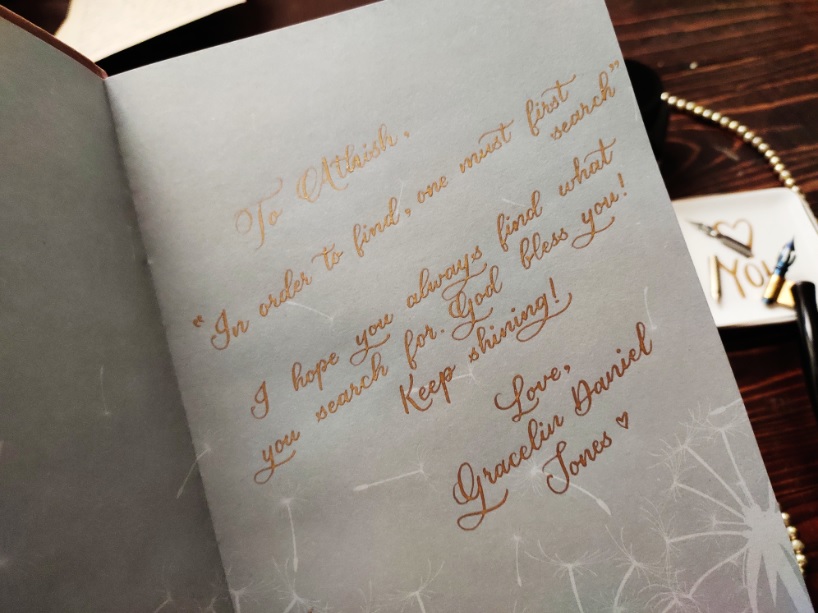 To
"In order to find, one must first
search"
I hope you always find what
you search for. God bless you!
Keep shining!
Love,
Gracelin Daniel
Jones ♥
You